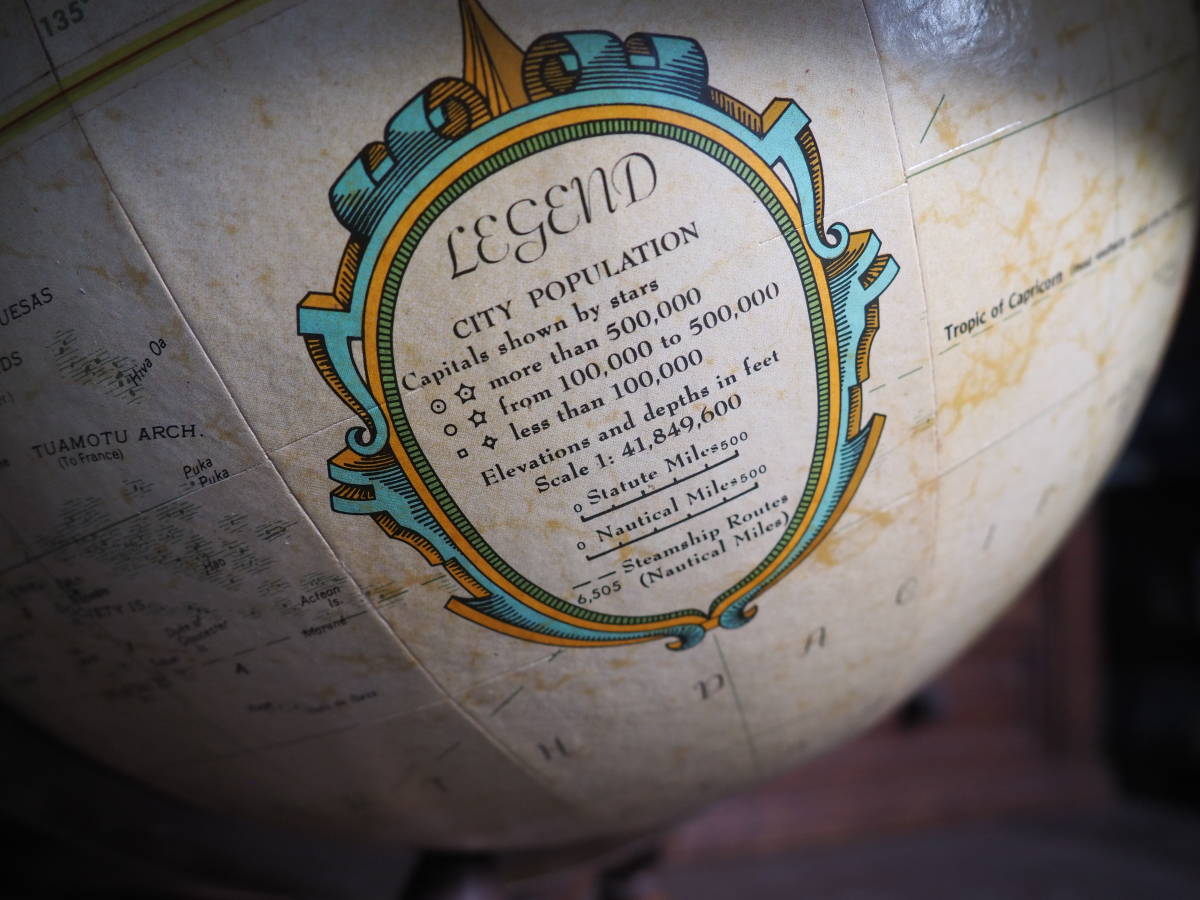 135°
LEGEND
CITY POPULATION
Capitals shown by stars
more than 500,000
from 100,000 to 500,000
less than 100,000
Elevations and depths in feet
Scale 1: 41,849,600
0 Statute Miles 500
0 Nautical Miles 500
Steamship Routes
6,505 (Nautical Miles)
Tropic of Capricorn
UESAS
DS
Hiva Oa
TUAMOTU ARCH.
(To France)
Puka
Puka
Hao
Acteon
Is.
Morane
H D A C I F